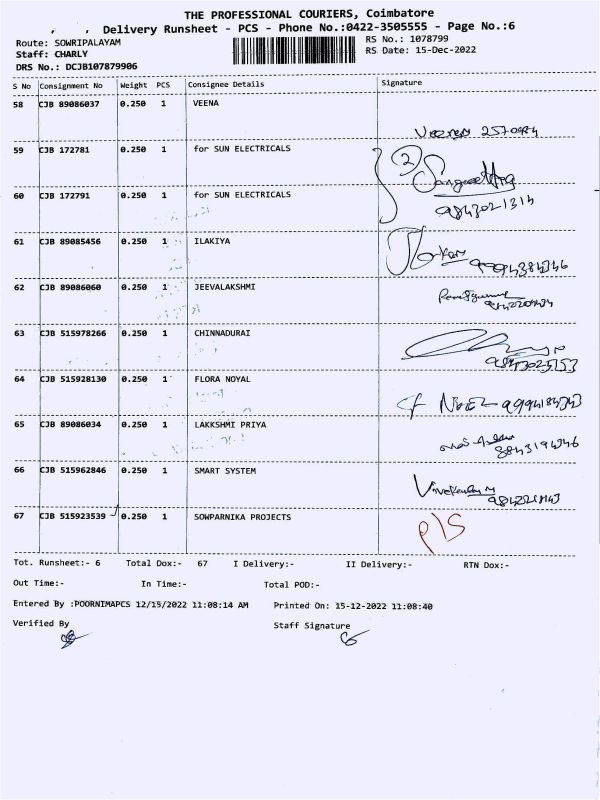 THE PROFESSIONAL COURIERS, Coimbatore
, , Delivery Runsheet - PCS - Phone No.:0422-3505555 - Page No.:6
Route: SOWRIPALAYAM RS No.: 1078799
Staff: CHARLY RS Date: 15-Dec-2022
DRS No.: DCJB107879906
S No Consignment No Weight PCS Consignee Details Signature
58 CJB 89086037 0.250 1 VEENA
59 CJB 172781 0.250 1 for SUN ELECTRICALS
2
60 CJB 172791 0.250 1 for SUN ELECTRICALS
9843021314
61 CJB 89085456 0.250 1 ILAKIYA
9994384346
62 CJB 89086060 0.250 1 JEEVALAKSHMI
63 CJB 515978266 0.250 1 CHINNADURAI
9843025153
64 CJB 515928130 0.250 1 FLORA NOYAL
65 CJB 89086034 0.250 1 LAKKSHMI PRIYA
66 CJB 515962846 0.250 1 SMART SYSTEM
67 CJB 515923539 0.250 1 SOWPARNIKA PROJECTS
P/S
Tot. Runsheet:- 6 Total Dox:- 67 I Delivery:- II Delivery:- RTN Dox:-
Out Time:- In Time:- Total POD:-
Entered By :POORNIMAPCS 12/15/2022 11:08:14 AM Printed On: 15-12-2022 11:08:40
Verified By Staff Signature